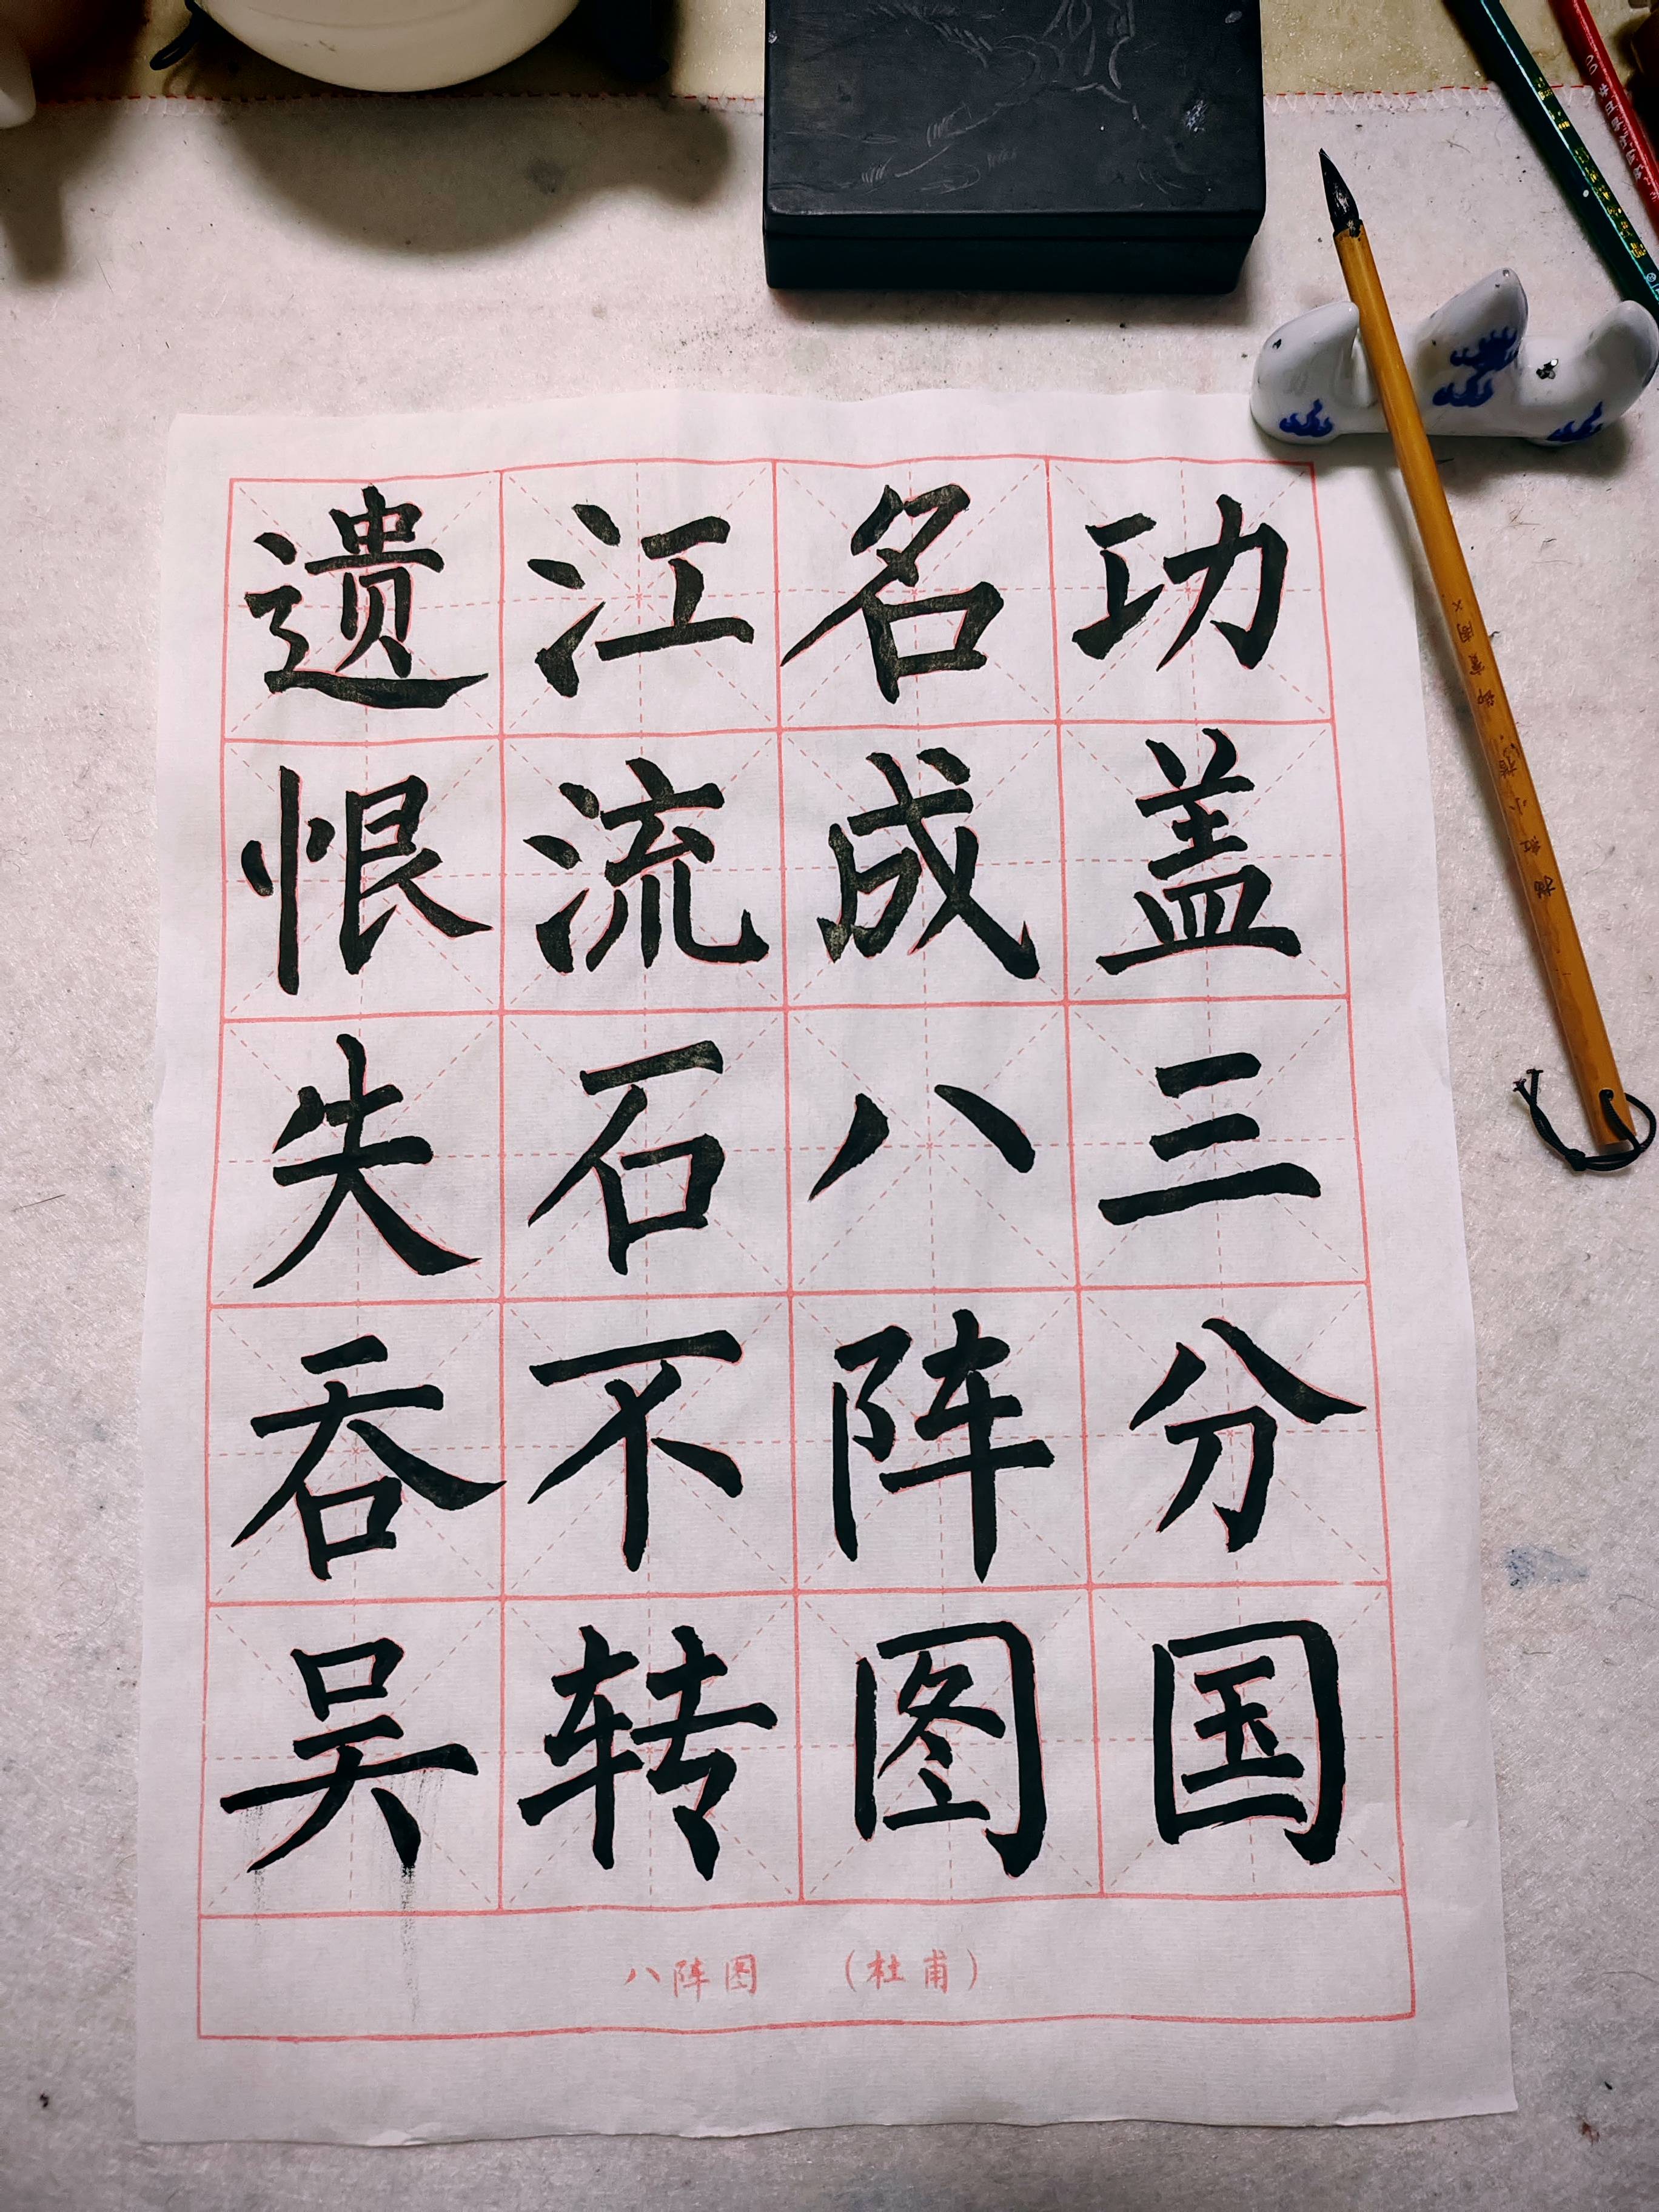 功盖三分国
名成八阵图
江流石不转
遗恨失吞吴
八阵图 （杜甫）